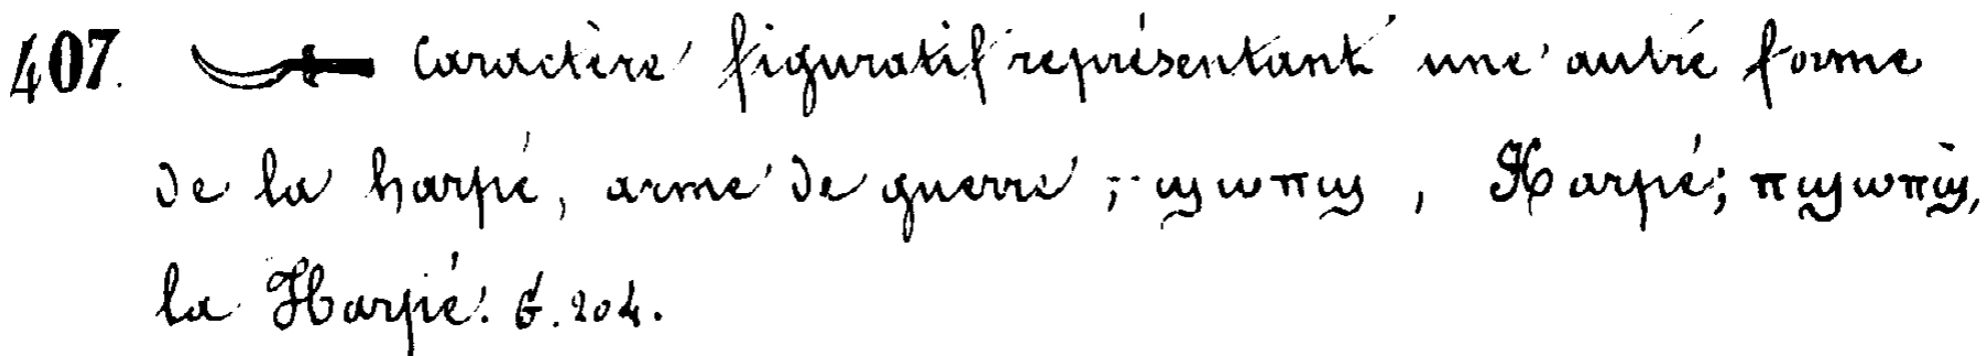 407. Caractère figuratif représentant une autre forme
de la harpé, arme de guerre; ϣωπϣ, Harpé; πϣωπϣ,
la Harpé. G. 204.